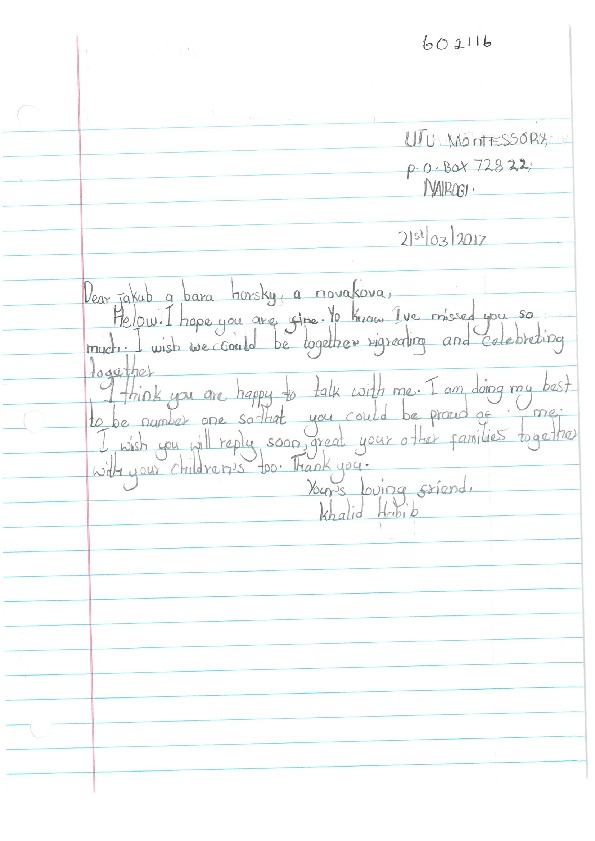 602116
UTU MONTESSORY,
P.O. BOX 72822,
NAIROBI.
21st/03/2017
Dear jakub a bara horsky, a novakova,
Helow. I hope you are fine. Yo know I've missed you so
much. I wish we could be together and celebrating
together
I think you are happy to talk with me. I am doing my best
to be number one so that you could be proud of me.
I wish you will reply soon, great your other families together
with your children's too. Thank you.
Your's loving friend.
Khalid Habib